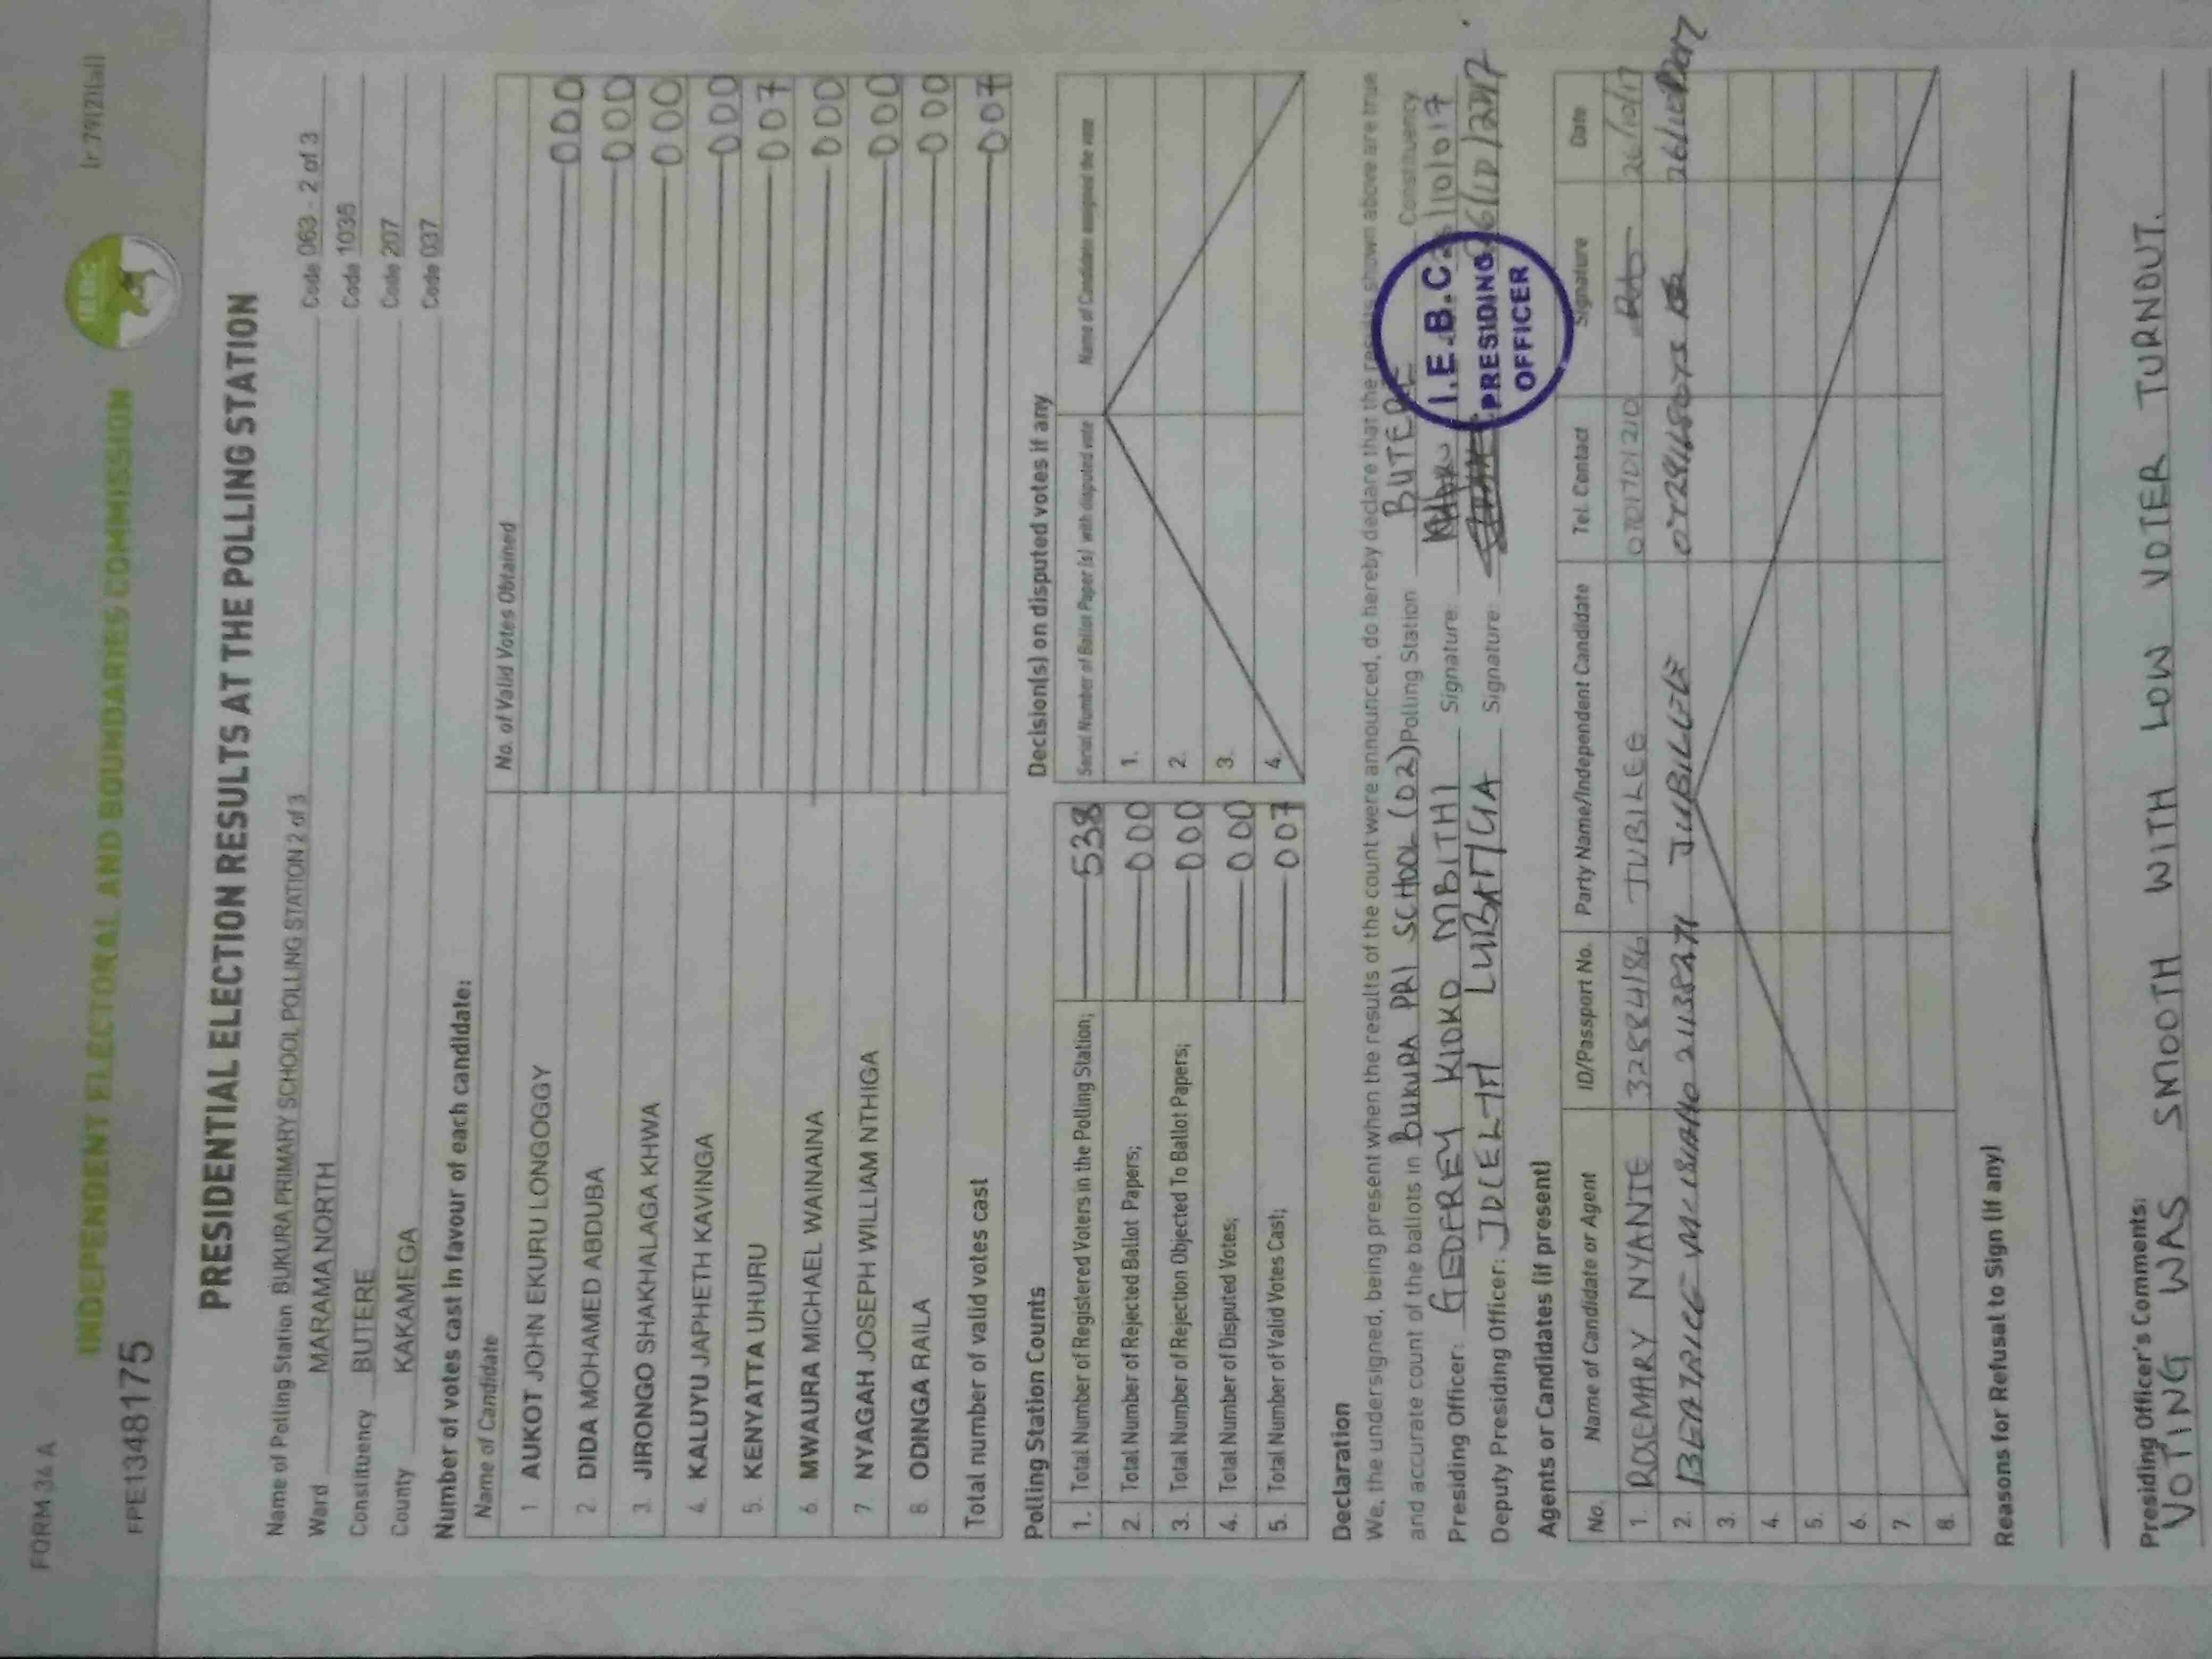 FORM 34 A
(r.79(2)(a))
INDEPENDENT ELECTORAL AND BOUNDARIES COMMISSION
IEBC
FPE1348175
PRESIDENTIAL ELECTION RESULTS AT THE POLLING STATION
Name of Polling Station BUKURA PRIMARY SCHOOL POLLING STATION 2 of 3 Code 063 - 2 of 3
Ward MARAMA NORTH Code 1035
Constituency BUTERE Code 207
County KAKAMEGA Code 037
Number of votes cast in favour of each candidate:
Name of Candidate No. of Valid Votes Obtained
1 AUKOT JOHN EKURU LONGOGGY 000
2 DIDA MOHAMED ABDUBA 000
3. JIRONGO SHAKHALAGA KHWA 000
4. KALUYU JAPHETH KAVINGA 000
5. KENYATTA UHURU 007
6 MWAURA MICHAEL WAINAINA 000
7. NYAGAH JOSEPH WILLIAM NTHIGA 000
8. ODINGA RAILA 000
Total number of valid votes cast 007
Polling Station Counts
1. Total Number of Registered Voters in the Polling Station; 538
2. Total Number of Rejected Ballot Papers; 000
3. Total Number of Rejection Objected To Ballot Papers; 000
4. Total Number of Disputed Votes; 000
5. Total Number of Valid Votes Cast; 007
Decision(s) on disputed votes if any
Serial Number of Ballot Paper (s) with disputed vote Name of Candidate assigned the vote
1.
2.
3.
4.
Declaration
We, the undersigned, being present when the results of the count were announced, do hereby declare that the results shown above are true
and accurate count of the ballots in BUKURA PRI SCHOOL (02) Polling Station BUTERE Constituency
Presiding Officer: GEOFREY KIOKO MBITHI Signature:
Deputy Presiding Officer: Signature: 26/10/2017
I.E.B.C.
PRESIDING
OFFICER
Agents or Candidates (if present)
No. Name of Candidate or Agent ID/Passport No. Party Name/Independent Candidate Tel. Contact Signature Date
1. ROSEMARY NYANJE 32584186 JUBILEE 0701701210 26/10/17
2. BEATRICE 21138271 JUBILEE
3.
4.
5.
6.
7.
8.
Reasons for Refusal to Sign (if any)
Presiding Officer's Comments:
VOTING WAS SMOOTH WITH LOW VOTER TURNOUT.